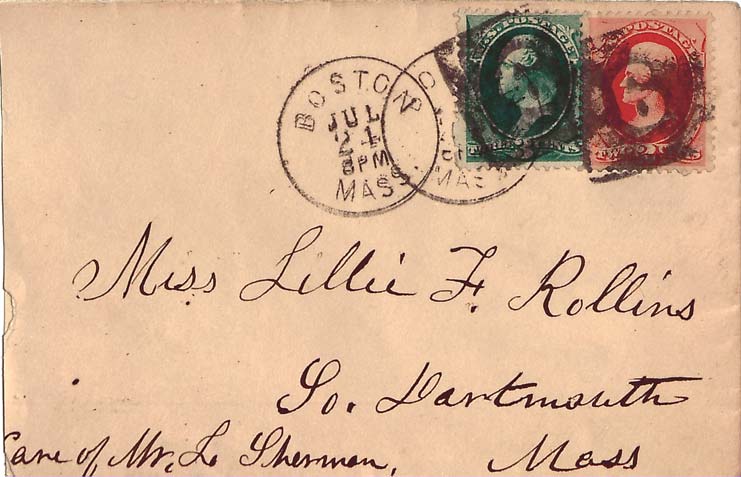 BOSTON
JUL
24
8 PM
MASS.
MASS
U.S. POSTAGE
THREE 3 CENTS
POSTAGE
TWO 2 CENTS
Miss Lillie F. Rollins
So. Dartmouth
Care of Mr. L. Sherman, Mass